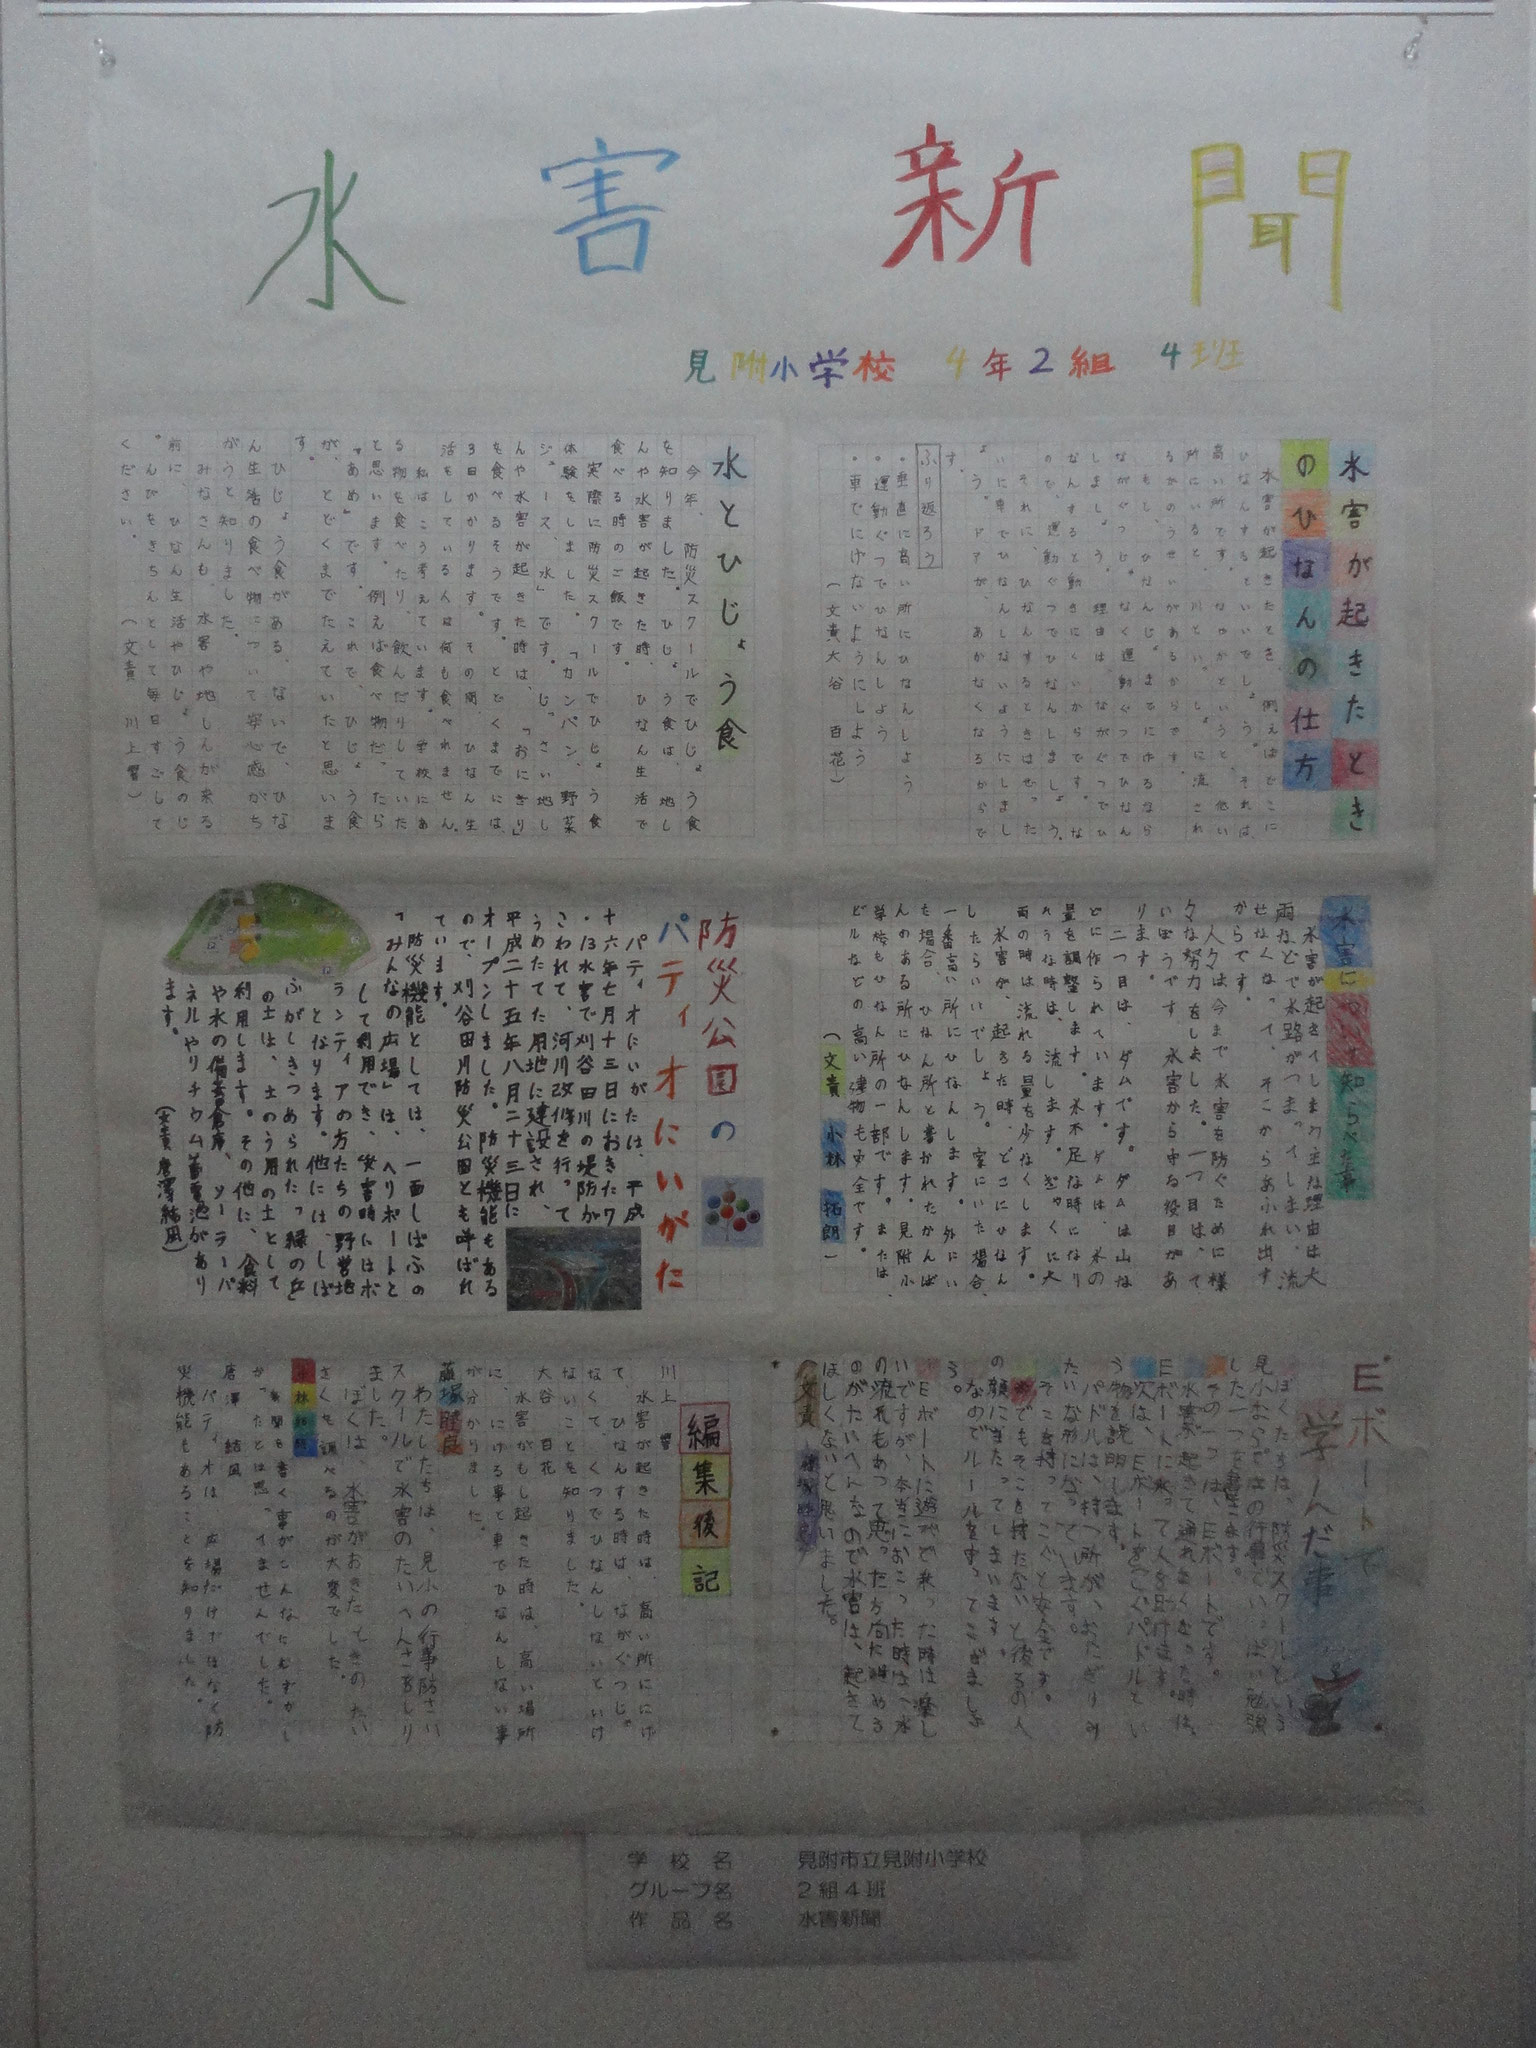 水害新聞
見附小学校 4年2組 4班
水害が起きたとき
のひなんの仕方
水害が起きたとき、例えばどこに
ひなんするといいでしょう。それは、
高い所です。なぜかというと、低い
所にいると、川といっしょに流され
るかのうせいがあるからです。
もし、ひなんじょまでにホるなら
ながぐつじゃなく運動ぐつでひなん
しましょう。理由は、ながぐつでひ
なんすると動きにくいからです。な
ので、運動ぐつでひなんしましょう。
それに、ひなんするときはぜった
いに車でひなんしないようにしまし
ょう。ドアが、あかなくなるからで
す。
ふり返ろう
・垂直に高い所にひなんしよう
・運動ぐつでひなんしよう
・車でにげないようにしよう
(文責大谷 百花)
水とひじょう食
今年、防災スクールでひじょう食
を知りました。ひじょう食は、地し
んや水害が起きた時、ひなん生活で
食べる時のご飯です。
実際に防災スクールでひじょう食
体験をしました。「カンパン、野菜
ジュース、水」です。じっさい地し
んや水害が起きた時は、「おにぎり」
を食べるそうです。とどくまでには、
3日かかります。その間、ひなん生
活をしている人は何も食べれません。
私はこう考えています。学校にあ
る物を食べたり、飲んだりしていた
と思います。例えば食べ物だったら
「あめ」です。これで、ひじょう食
が、とどくまでたえていたと思いま
す。
ひじょう食がある、ないで、ひな
ん生活の食べ物について安心感がち
がうと知りました。
みなさんも、水害や地しんが来る
前に、ひなん生活やひじょう食のじ
ゅんびをきちんとして毎日すごして
ください。(文責 川上 響)
水害について知らべた事
水害が起きてしまう主な理由は大
雨などで水路がつまってしまい、流
せなくなって、そこからあふれ出す
からです。
人々は今まで水害を防ぐために様
々な努力をしました。一つ目は、て
いぼうです。水害から守る役目があ
ります。
二つ目は、ダムです。ダムは山な
どに作られています。ダムは、水の
量を調整します。水不足な時になり
そうな時は、流します。ぎゃくに大
雨の時は流れる量を少なくします。
水害が、起きた時、どこにひなん
したらいいでしょう。家にいた場合、
一番高い所にひなんします。外にい
た場合、ひなん所と書かれたかんば
んのある所にひなんします。見附小
学校もひなん所の一部です。または、
ビルなどの高い建物も安全です。
(文責 小林 拓朗)
防災公園の
パティオにいがた
パティオにいがたは、平成
十六年七月十三日におきた7
・13水害で刈谷田川の堤防が
こわれて、河川改修を行って
うめたてた用地に建設され、
平成二十五年八月二十三日に
オープンしました。防災機能もある
ので、刈谷田川防災公園とも呼ばれ
ています。
防災機能としては、一面しばふの
「みんなの広場」は、ヘリポートと
して利用でき、災害時にはボ
ランティアの方たちの野営地
となります。他には、しば
ふがしきつめられた「緑の丘」
の土は、土のう用の土として
利用します。その他に、食料
や水の備蓄倉庫、ソーラーパ
ネルやリチウム蓄電池があり
ます。
(文責 唐澤 結凪)
Eボートで
学んだ事
ぼくたちは、防災スクールという
見小ならではの行事でいっぱい勉強
した一つを書きます。
その一つは、Eボートです。
水害が起きて通れなくなった時は、
Eボートに乗って人を助けます。
次は、Eボートをこぐパドルとい
う物を説明します。
パドルは、持つ所が、おにぎりみ
たいな形になっています。
そこを持ってこぐと安全です。
でもそこを持たないと後ろの人
の顔に当たってしまいます。
なのでルールを守ってこぎましょ
う。
Eボートに遊びで乗った時は楽し
いですが、本当におこった時は、水
の流れもあって思った方向に進める
のがたいへんなので水害は、起きて
ほしくないと思いました。
編集後記
川上 響
水害が起きた時は、高い所ににげ
て、ひなんする時は、ながぐつじゃ
なくて、くつでひなんしないといけ
ないことを知りました。
大谷 百花
水害がもし起きた時は、高い場所
に、にげる事と車でひなんしない事
が分かりました。
わたしたちは、見小の行事防さい
スクールで水害のたいへんさをしり
ました。
ぼくは、水害がおきたときのたい
さくを調べるのが大変でした。
小林 拓朗
新聞を書く事がこんなにむずかし
かったとは思っていませんでした。
唐澤 結凪
パティオは、広場だけではなく防
災機能もあることを知りました。
学校名 見附市立見附小学校
グループ名 2組4班
作品名 水害新聞